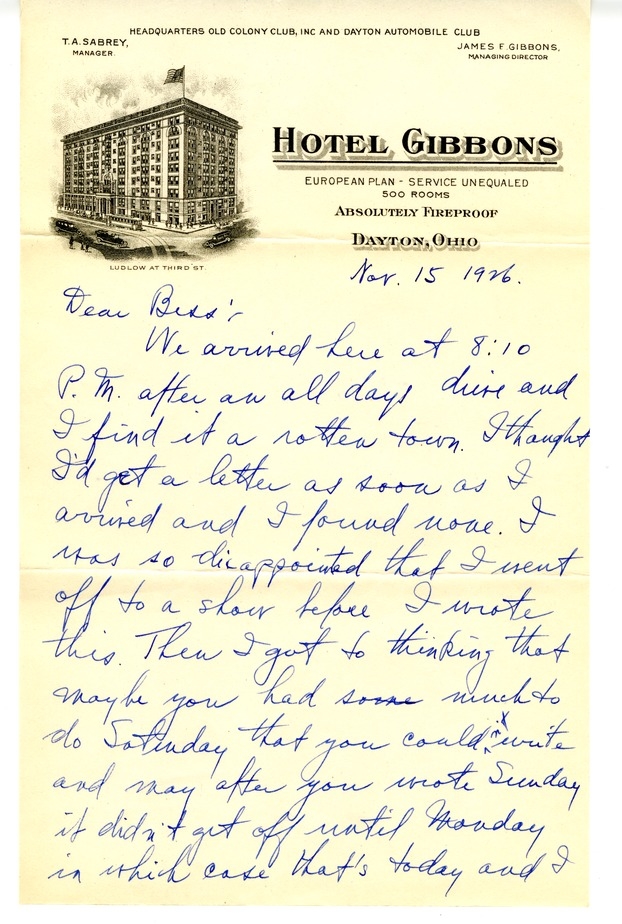 HEADQUARTERS OLD COLONY CLUB, INC AND DAYTON AUTOMOBILE CLUB
T.A. SABREY,
MANAGER.
JAMES F. GIBBONS,
MANAGING DIRECTOR
HOTEL GIBBONS
EUROPEAN PLAN - SERVICE UNEQUALED
500 ROOMS
ABSOLUTELY FIREPROOF
DAYTON, OHIO
LUDLOW AT THIRD ST.
Nov. 15 1926.
Dear Bess:-
We arrived here at 8:10
P.M. after an all days drive and
I find it a rotten town. I thought
I'd get a letter as soon as I
arrived and I found none. I
was so disappointed that I went
off to a show before I wrote
this. Then I got to thinking that
maybe you had some much to
do Saturday that you could n't write
and may after you wrote Sunday
it didn't get off until Monday
in which case that's today and I